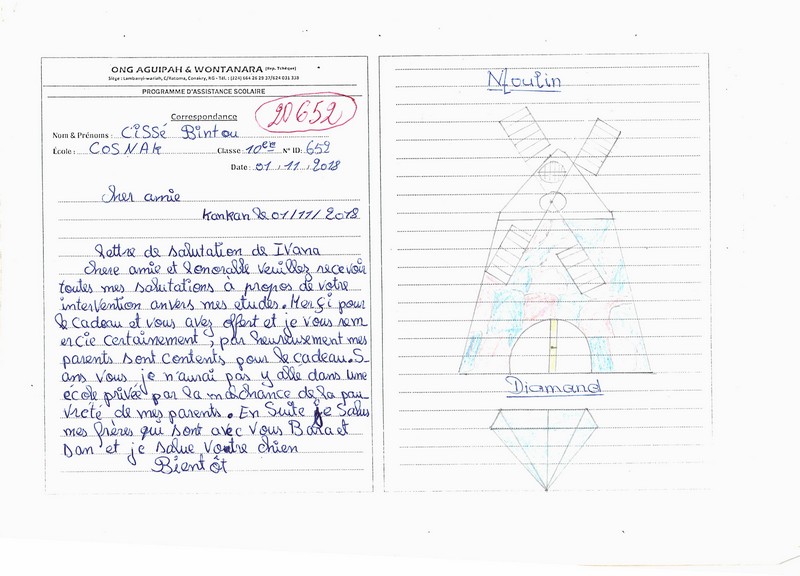 ONG AGUIPAH & WONTANARA (Rep. Tchèque)
Siège : Lambanyi-wariah, C/Ratoma, Conakry, RG - Tél. : (224) 664 26 29 37/624 031 338
PROGRAMME D'ASSISTANCE SCOLAIRE
Correspondance
20652
Nom & Prénoms : CISSé Bintou
École : COSNAK Classe 10ème N° ID: 652
Date : 01 / 11 / 2018
Cher amie
Kankan le 01/11/2018
lettre de salutation de IVana
Chere amie et honorable veuillez recevoir
toutes mes salutations à propos de votre
intervention anvers mes etudes. Merçi pour
le cadeau et vous avez offert et je vous rem
ercie certainement, par heureusement mes
parents sont contents pour le cadeau. S-
ans vous je n'aurai pas y allé dans une
école privée par la malchance de la pau
vreté de mes parents. En Suite je Salue
mes frères qui sont avec vous Bara et
Dan et je salue Voutre chien
Bient ôt
Moulin
Diamand